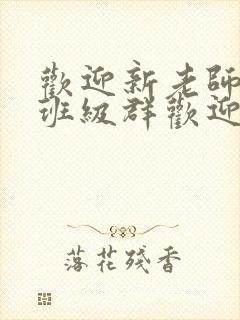 歡迎新老師
班級群歡迎
落花殘香